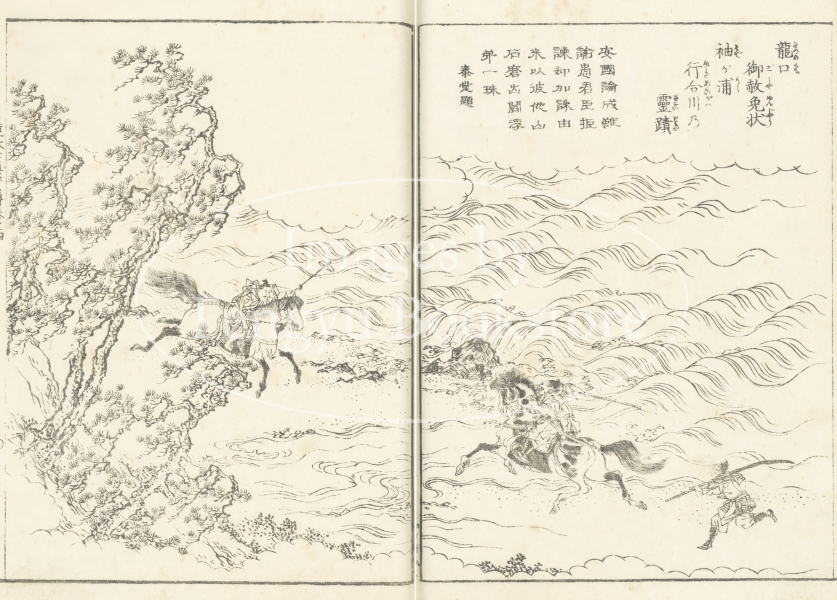 龍口
御赦免状
袖ヶ浦
行合川乃
靈蹟
安國論成難
諭愚君臣拒
諫却加誅由
来以彼他山
石磨出閻浮
第一珠
泰堂題
Images by
Tengyu Bookstore